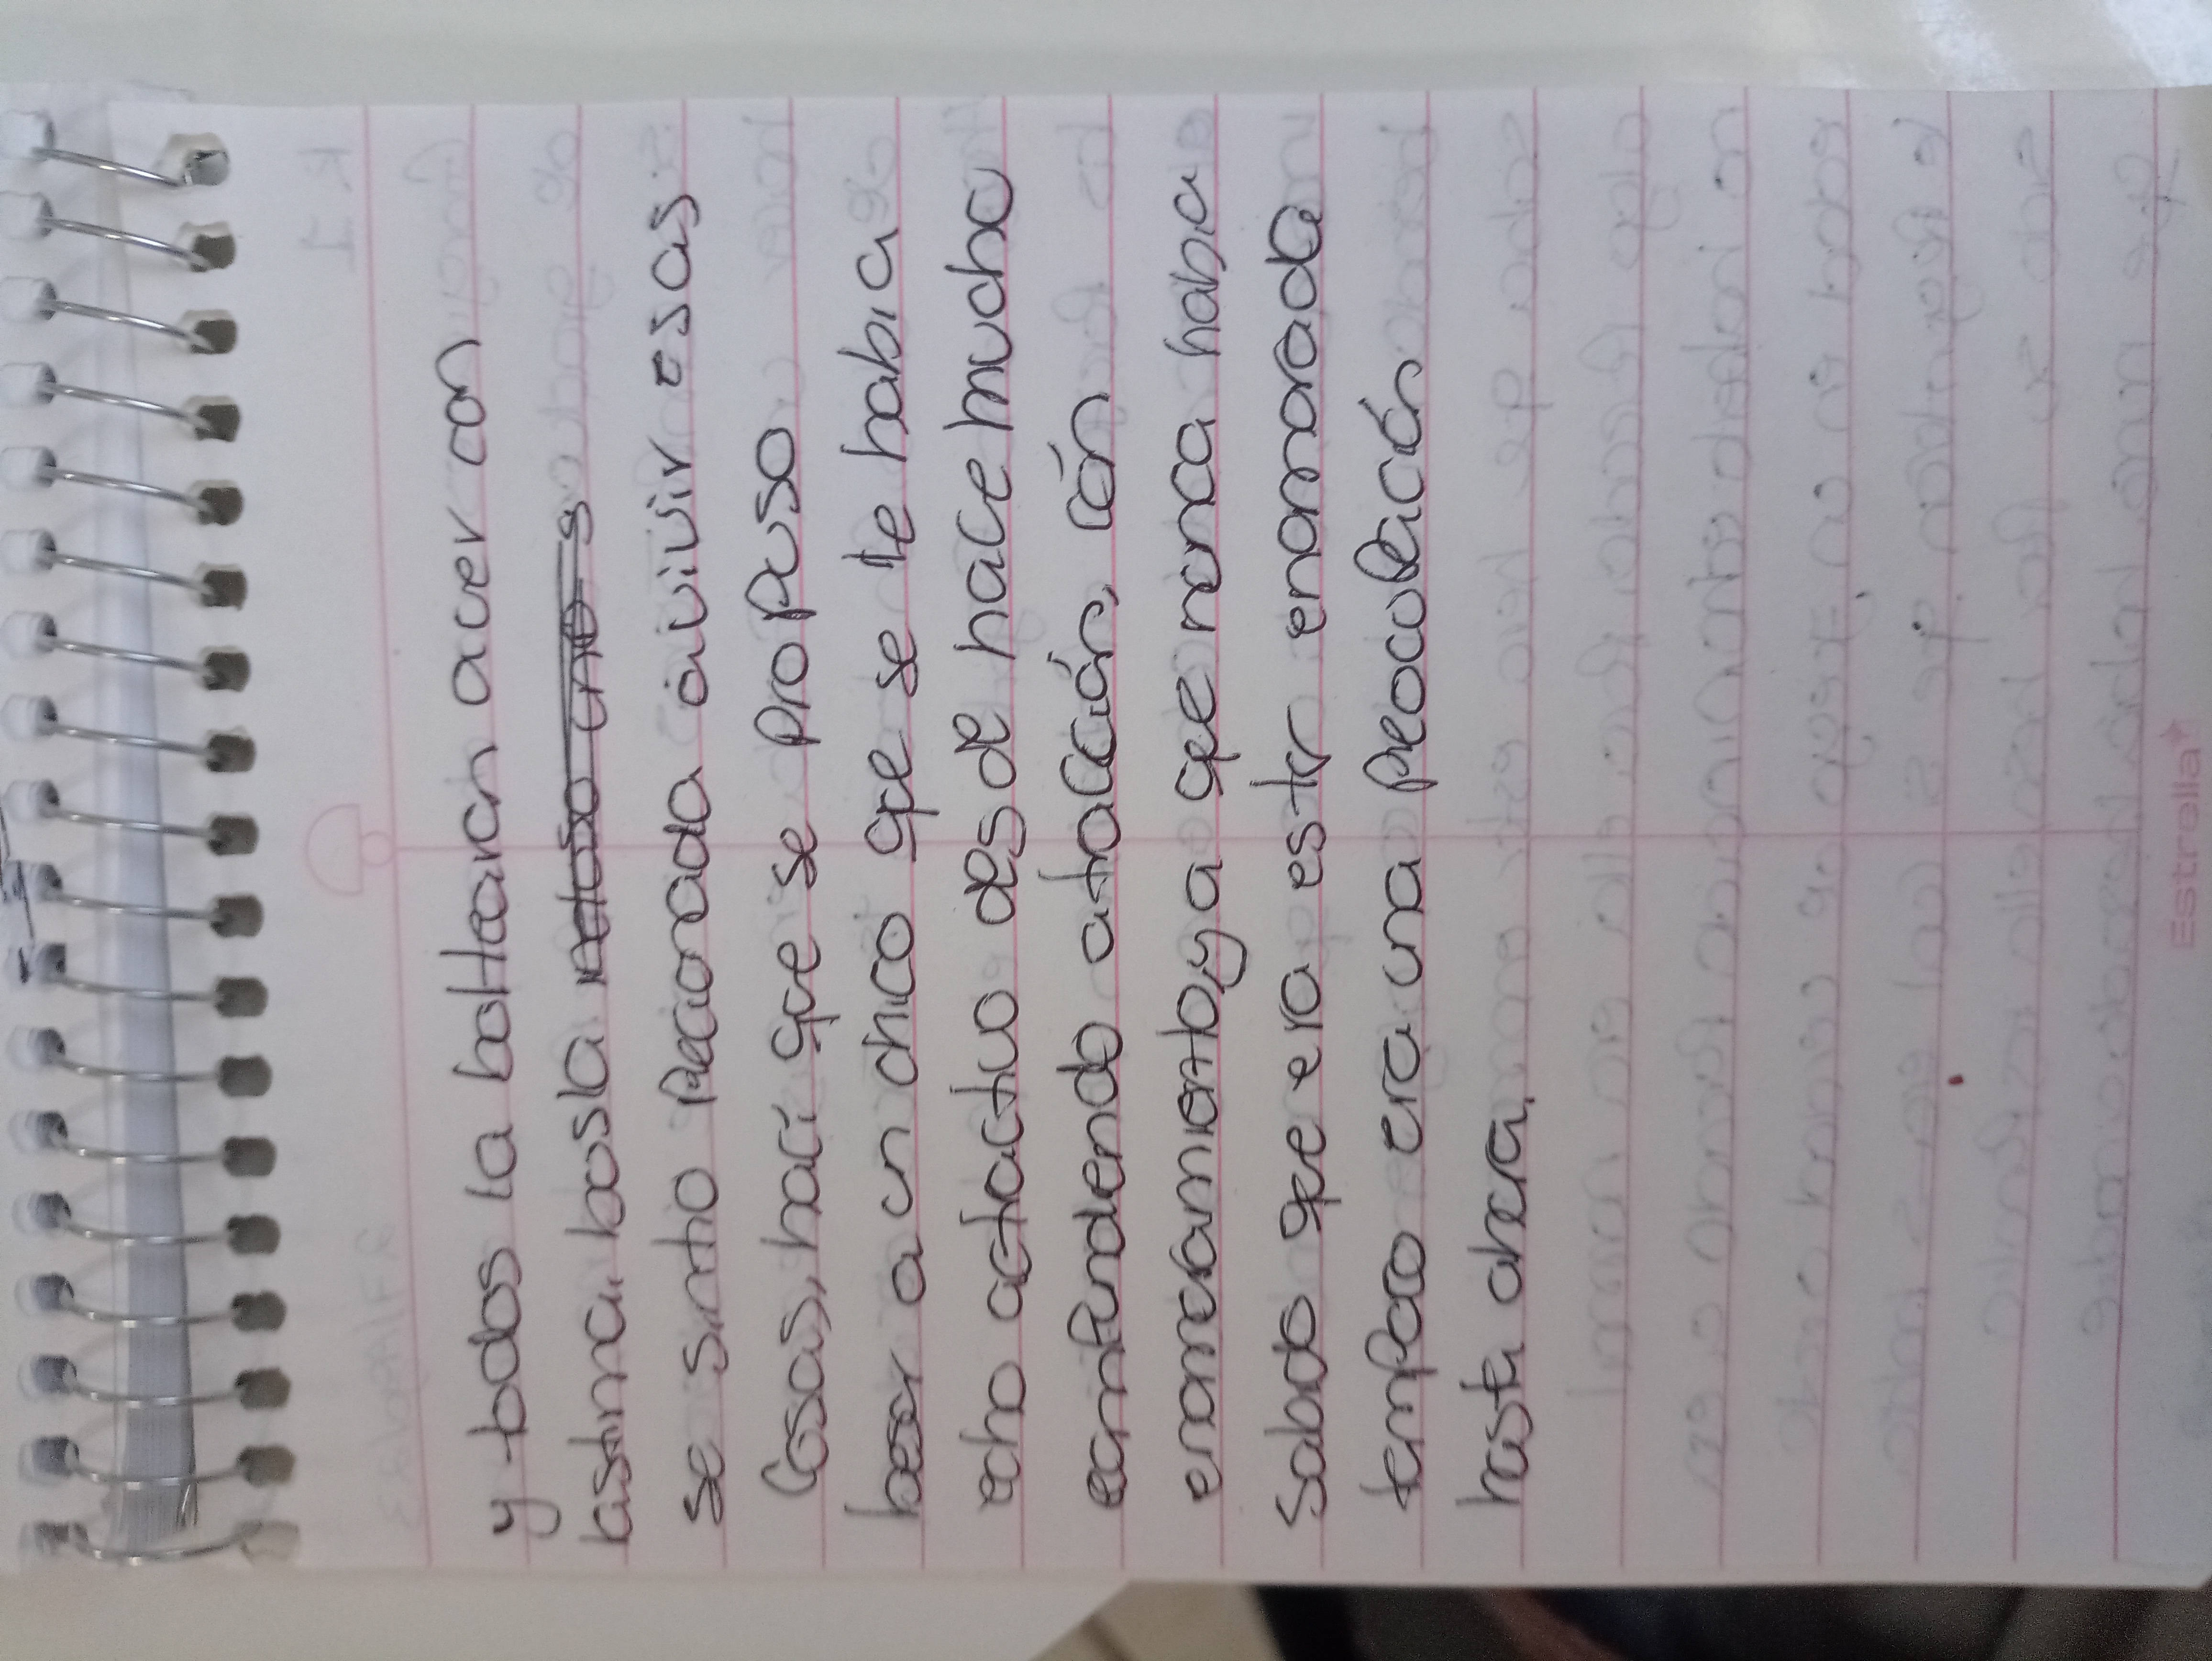 y todos la boltearon a ver con
lastima. hasta
se sintio precionada a vivir esas
cosas, haci que se propuso
besar a un chico que se te habia
echo actractivo desde hace mucho
confundendo atracción, con
enamoramiento, ya que nunca habia
sabado que era ester enamorada
tempoco era una preocupación
hasta ahora.
Estrella